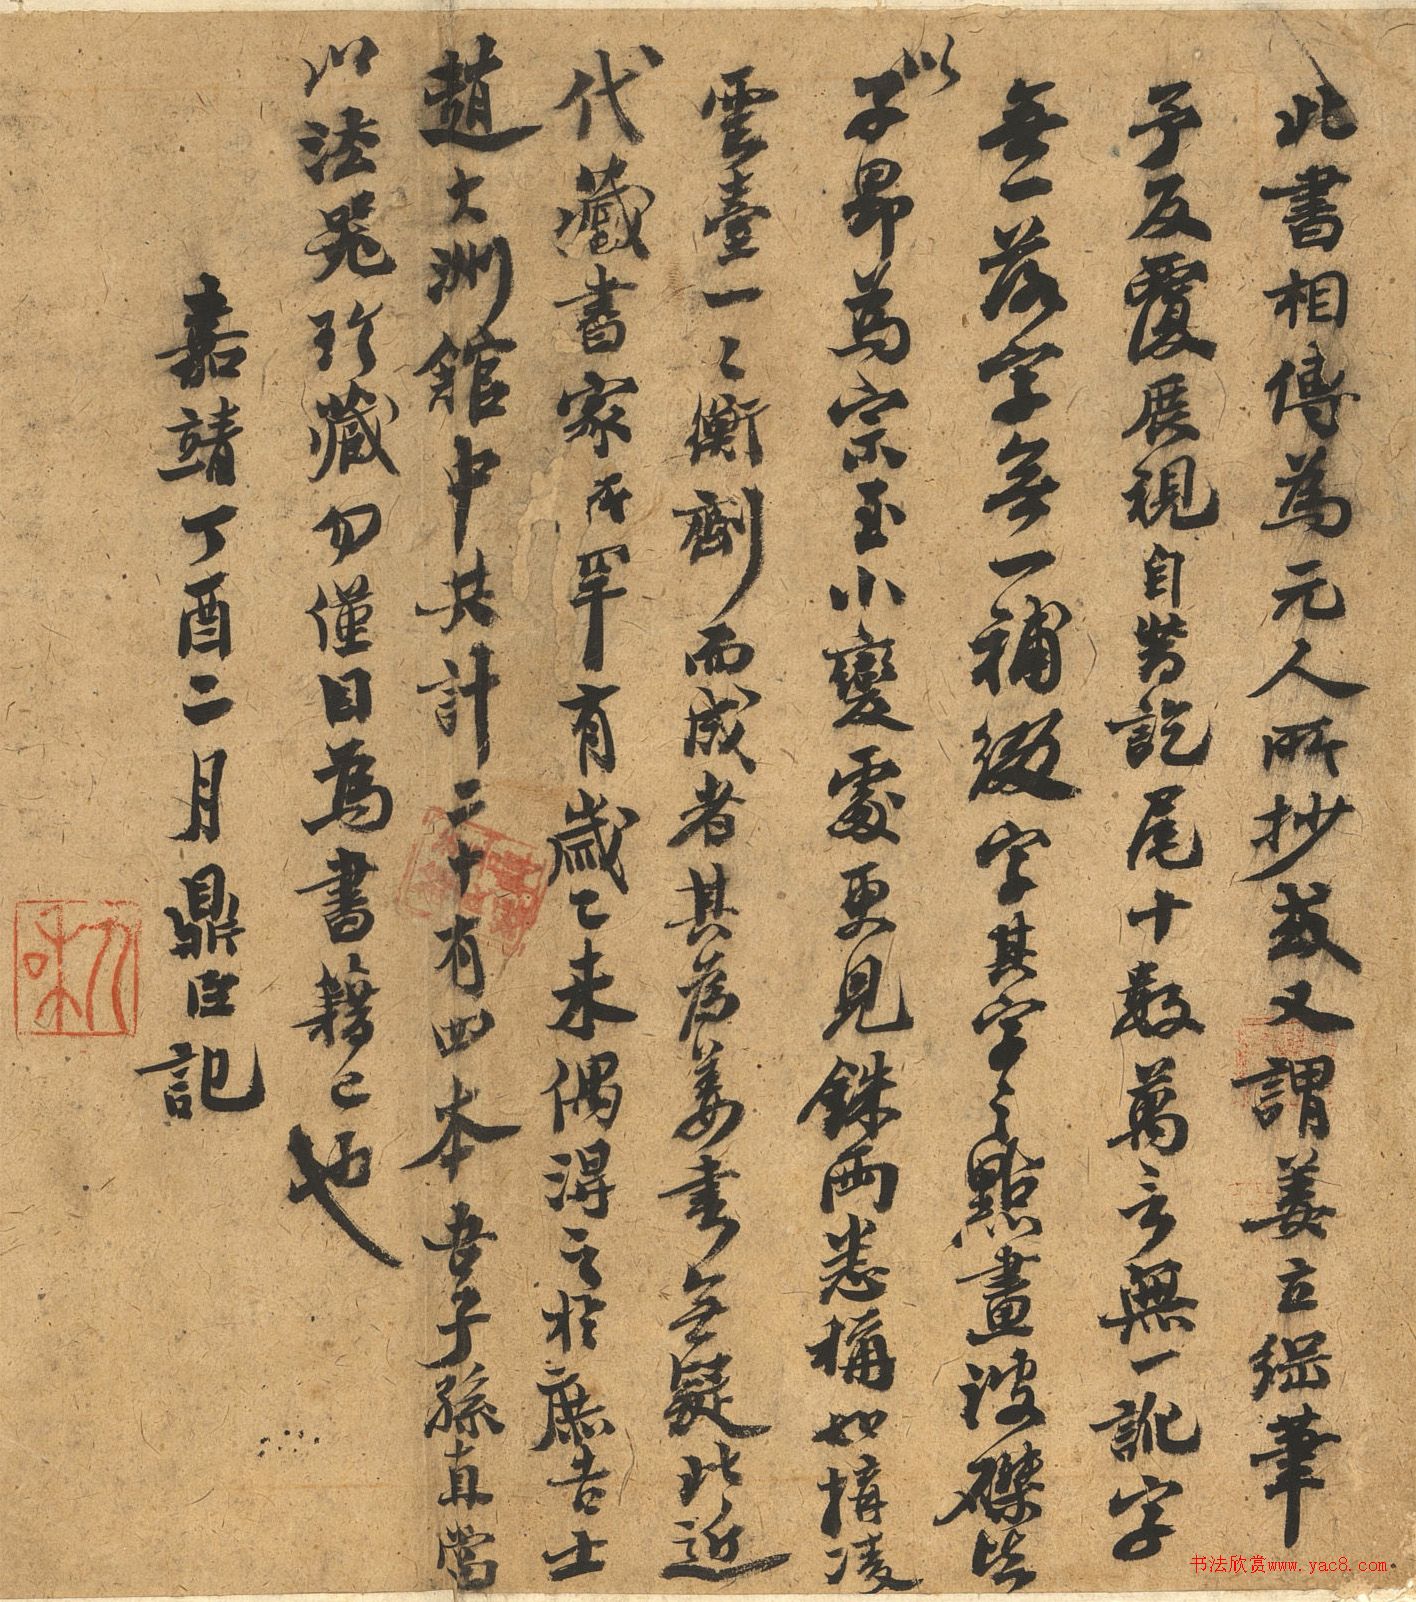 此書相傳為元人所抄或又謂姜立綱筆
予反覆展視自首訖尾十數萬言無一訛字
無一落字無一補綴字其字之點畫波磔皆
以子昂為宗至小變處更見銖兩悉稱如構凌
雲臺一一衡劑而成者其為姜書無疑此近
代藏書家所罕有歲乙未偶得之於庶吉士
趙大洲館中共計二十有四本吾子孫直當
以法器珍藏勿僅目為書籍已也
嘉靖丁酉二月鼎臣記
九和
书法欣赏www.yac8.com